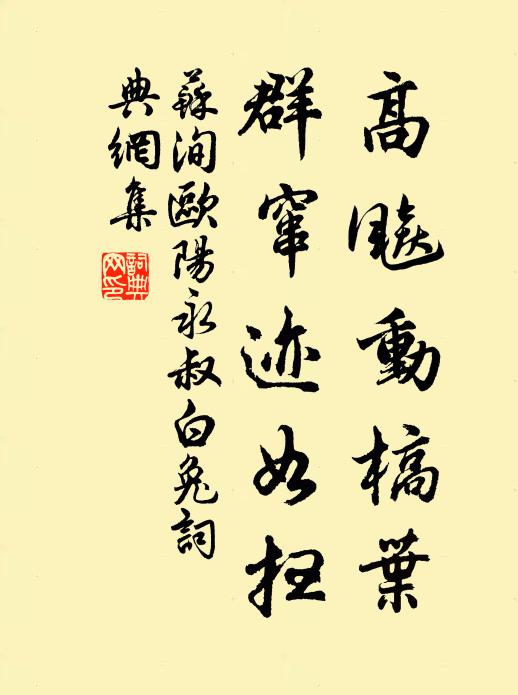 高飈動槁葉
群竄迹如扫
蘇洵歐陽永叔白兔詞
典網集
詞典
网印